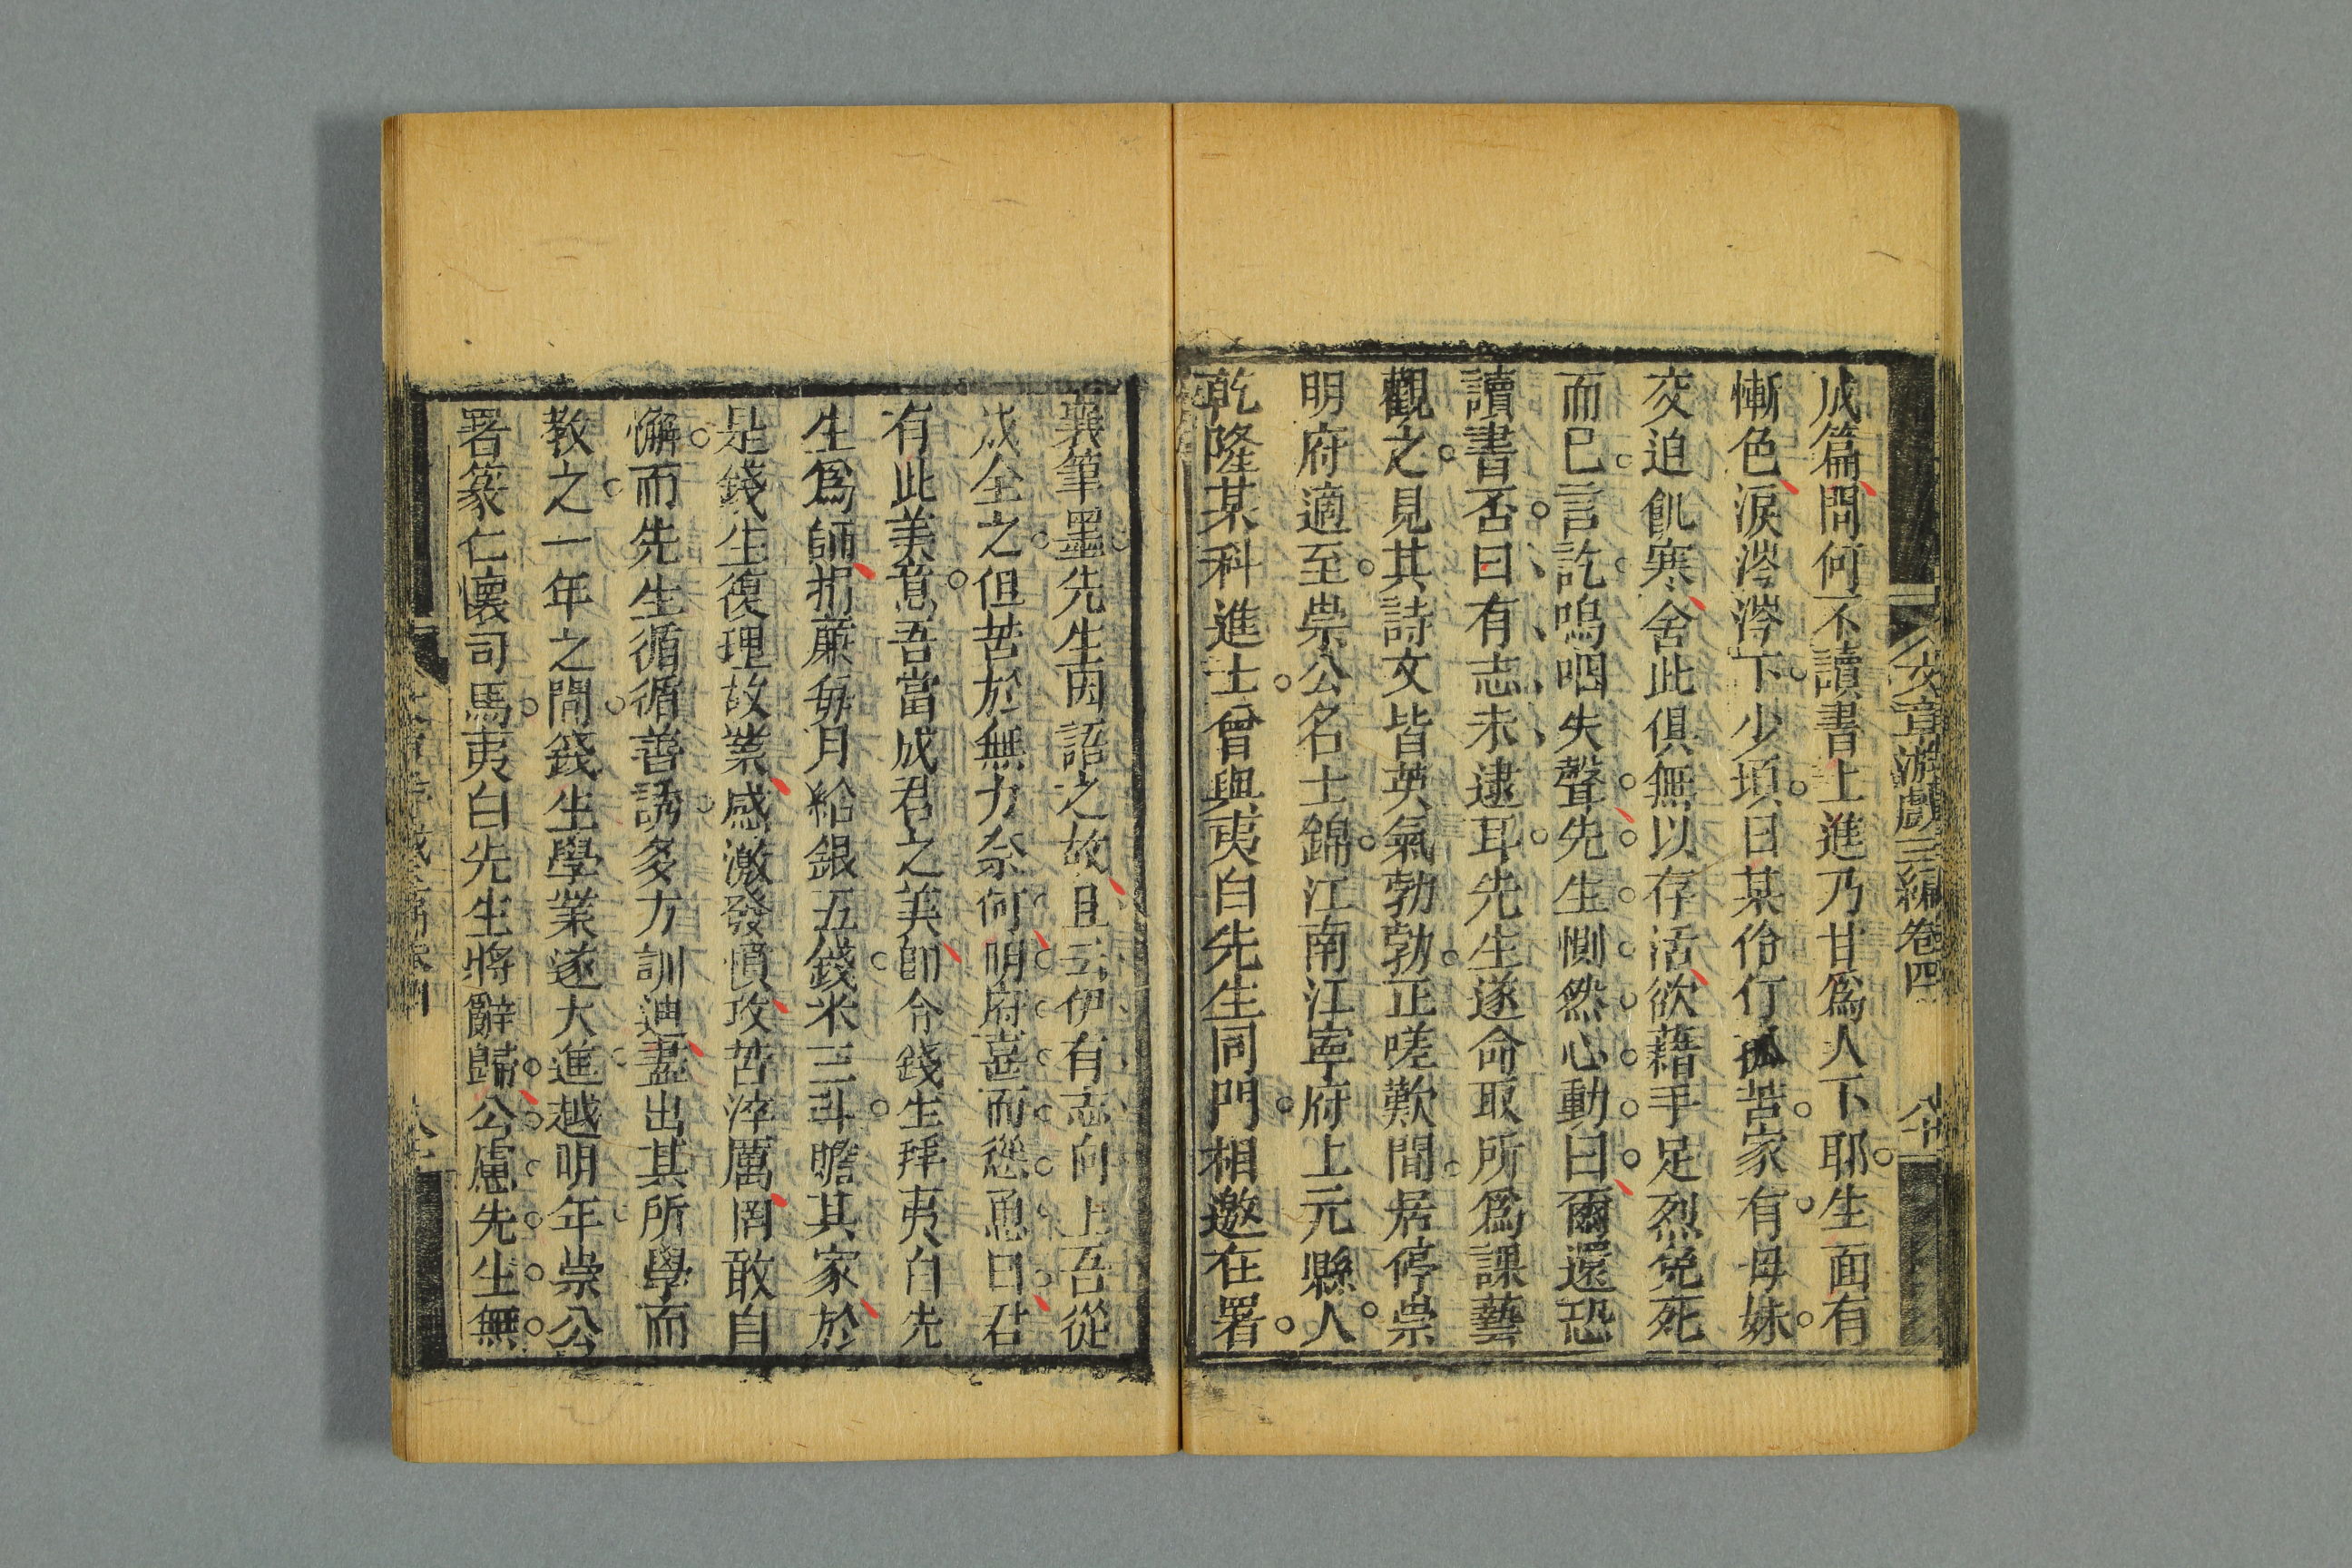 文章游戲三編卷四
八十
成篇問何不讀書上進乃甘爲人下耶生面有
慚色淚涔涔下少頃曰某伶仃孤苦家有母妹
交迫飢寒舍此俱無以存活欲藉手足烈免死
而已言訖嗚咽失聲先生惻然心動曰爾還恐
讀書否曰有志未逮耳先生遂命取所爲課藝
觀之見其詩文皆英氣勃勃正嗟歎間居停崇
明府適至崇公名士錦江南江寧府上元縣人
乾隆某科進士曾與夷白先生同門相邀在署
襄筆墨先生因語之故且云伊有志向上吾從
成全之但苦於無力奈何明府喜而慫恿曰君
有此美意吾當成君之美卽令錢生拜夷白先
生爲師捐廉每月給銀五錢米三斗贍其家於
是錢生復理故業感激發憤攻苦淬厲罔敢自
懈而先生循循善誘多方訓迪盡出其所學而
教之一年之間錢生學業遂大進越明年崇公
署篆仁懷司馬夷白先生將辭歸公慮先生無